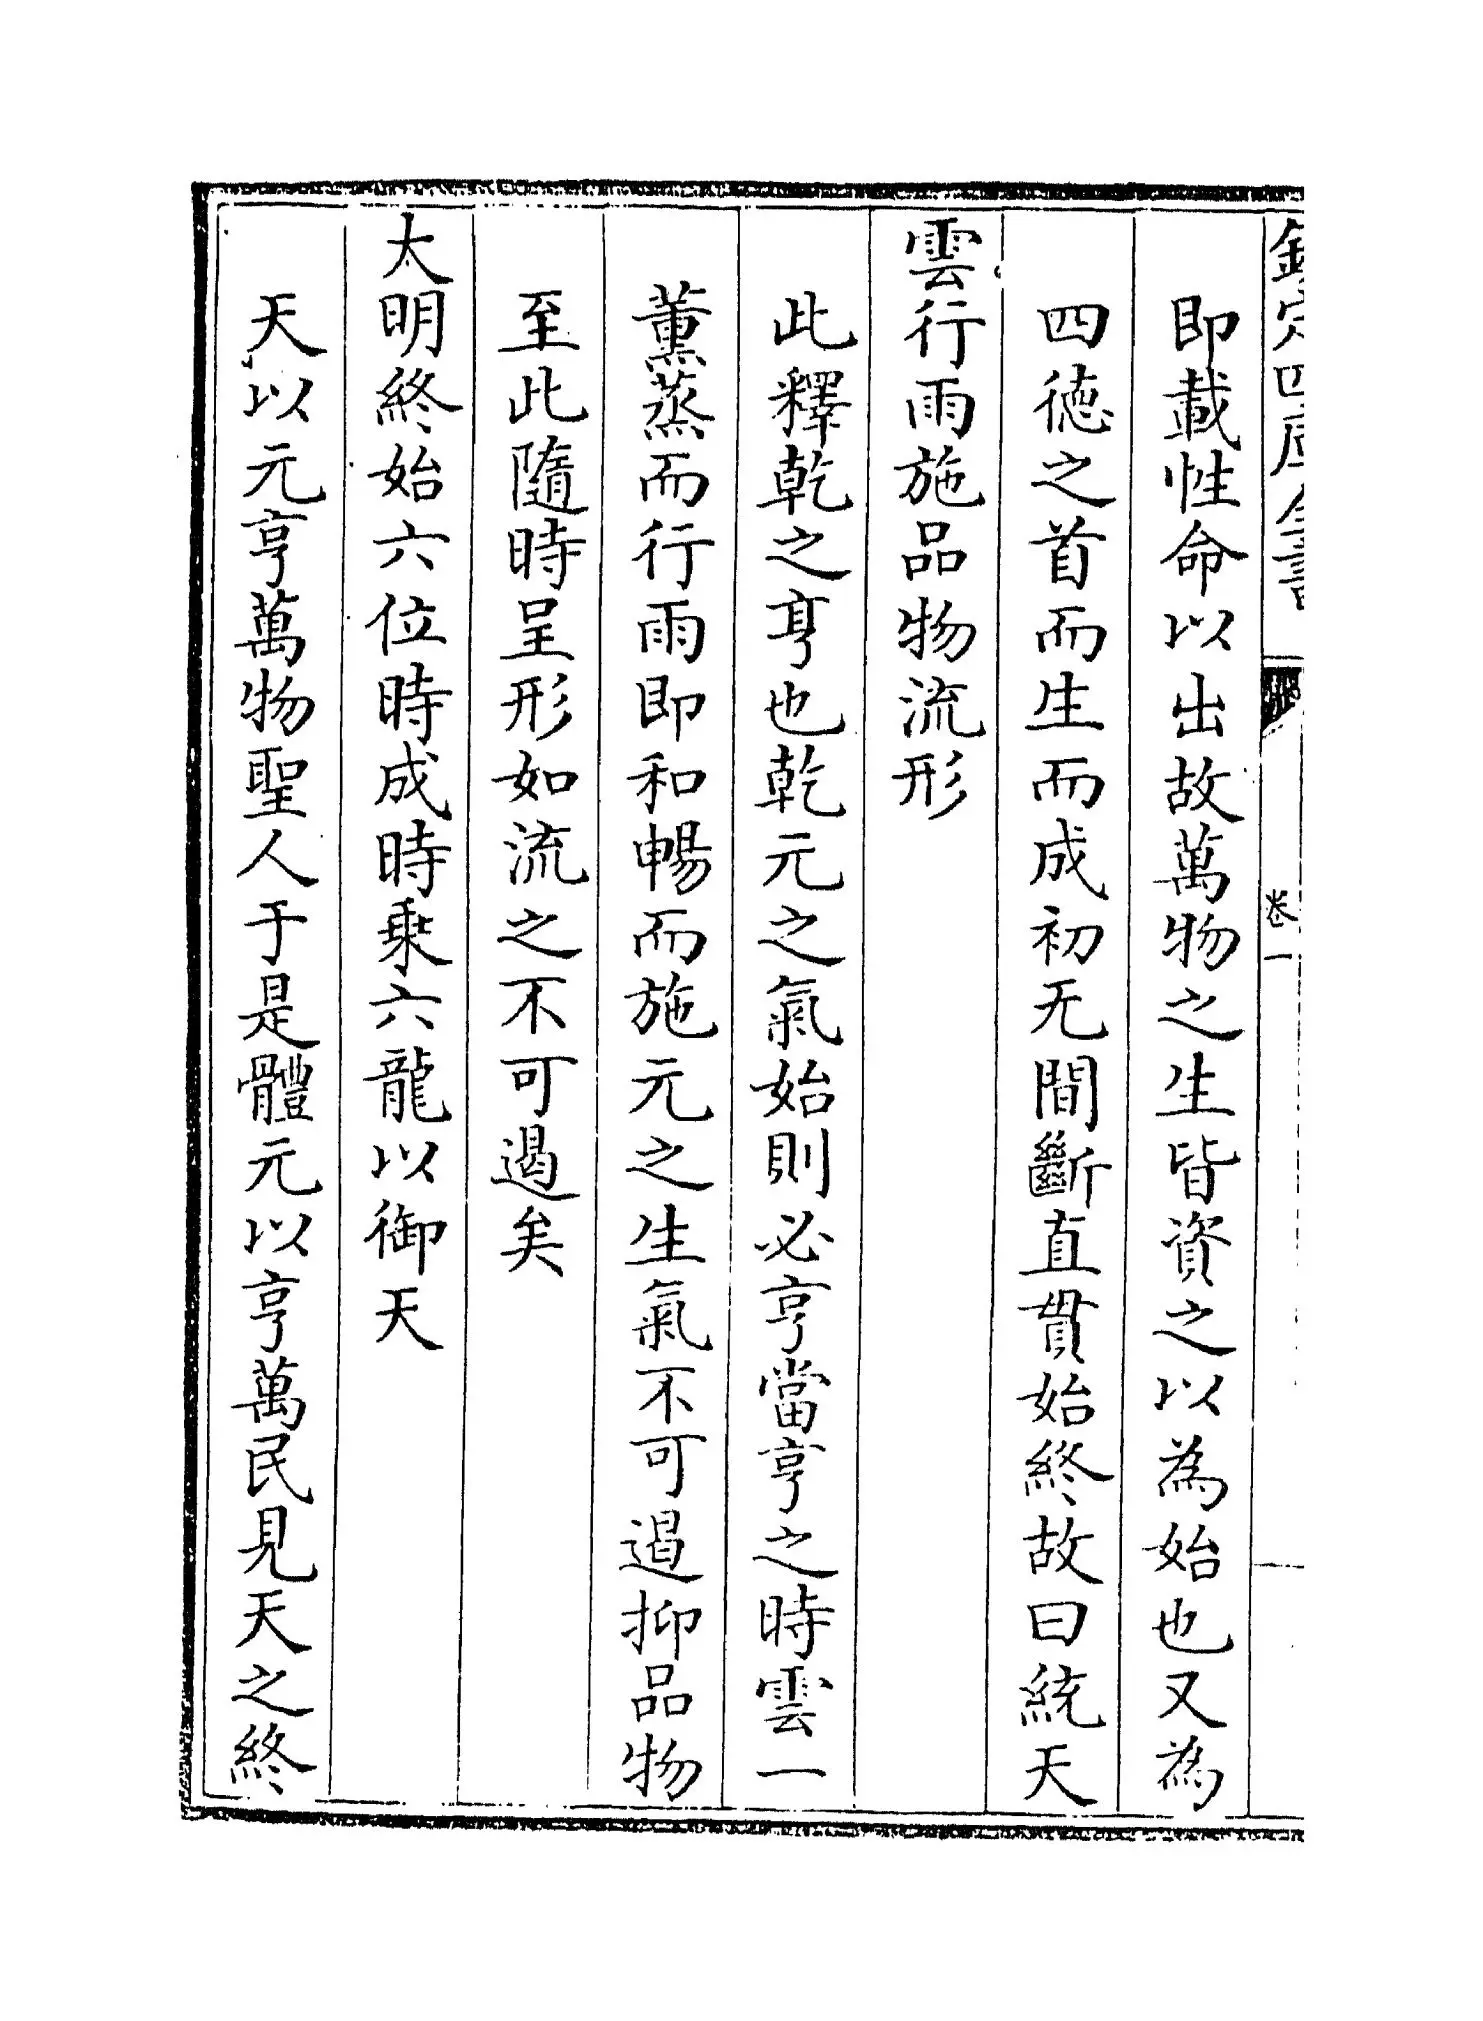 欽定四庫全書
卷一
即載性命以出故萬物之生皆資之以為始也又為
四德之首而生而成初无間斷直貫始終故曰統天
雲行雨施品物流形
此釋乾之亨也乾元之氣始則必亨當亨之時雲一
薰蒸而行雨即和暢而施元之生氣不可遏抑品物
至此隨時呈形如流之不可遏矣
大明終始六位時成時乘六龍以御天
天以元亨萬物聖人于是體元以亨萬民見天之終